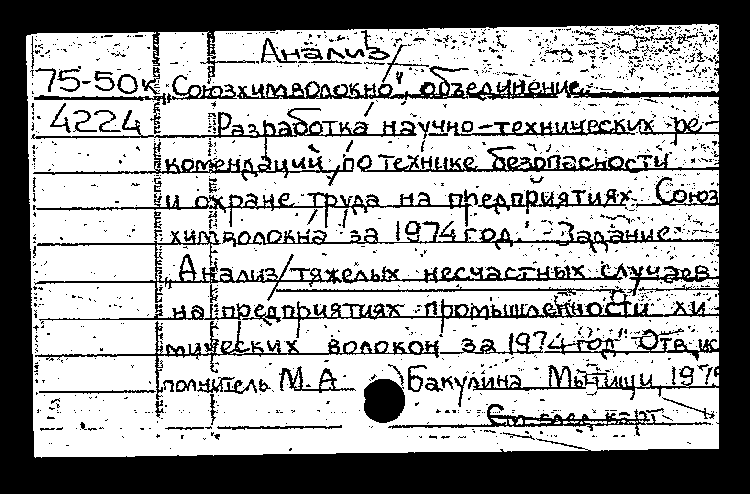 Анализ
75-50к „Союзхимволокно", объединение.
4224 Разработка научно-технических ре-
комендаций по технике безопасности
и охране труда на предприятиях Союз
химволокна за 1974 год. - Задание
„Анализ тяжелых несчастных случаев
на предприятиях промышленности хи-
мических волокон за 1974 год" Отв. ис
полнитель М.А. Бакулина Мытищи, 197
См. след. карт.